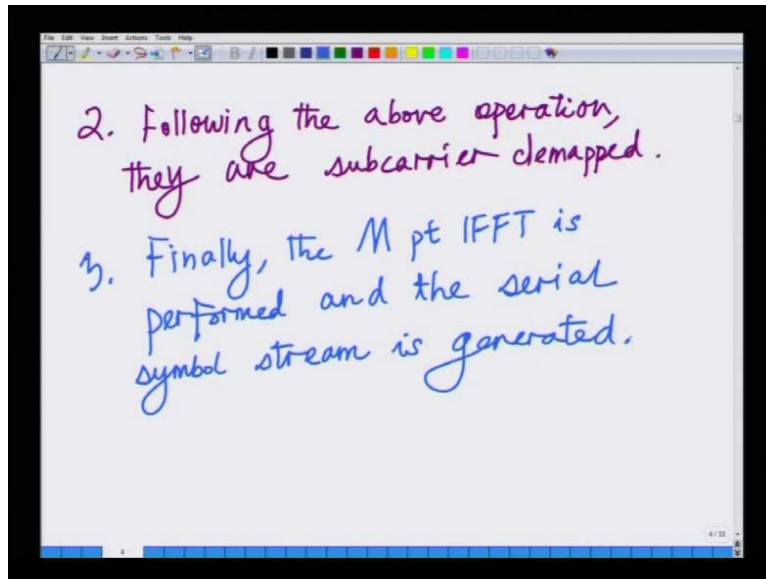 File Edit View Insert Actions Tools Help
2. Following the above operation,
they are subcarrier demapped.
3. Finally, the M pt IFFT is
performed and the serial
symbol stream is generated.